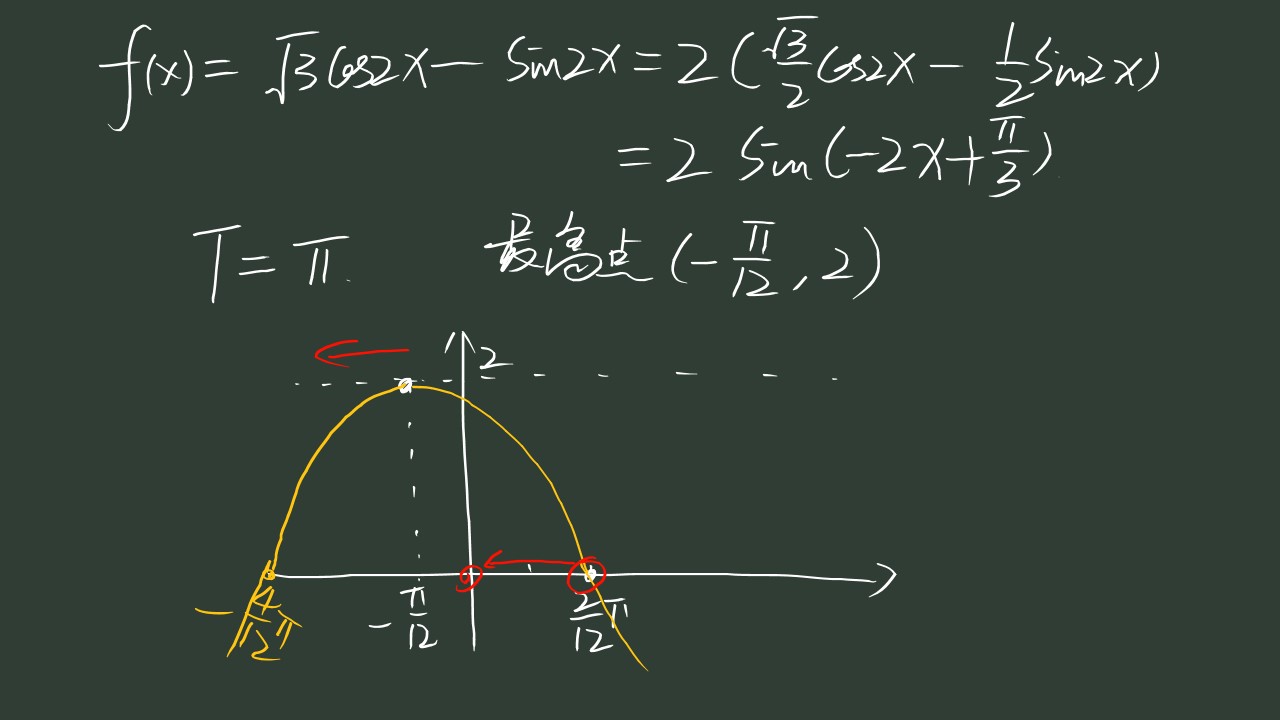 f(x) = √3 cos2x − sin2x = 2 (√3/2 cos2x − 1/2 sin2x)
= 2 sin(−2x + π/3)
T = π. 最高点 (−π/12, 2)
2
−4/12 π −π/12 2/12 π